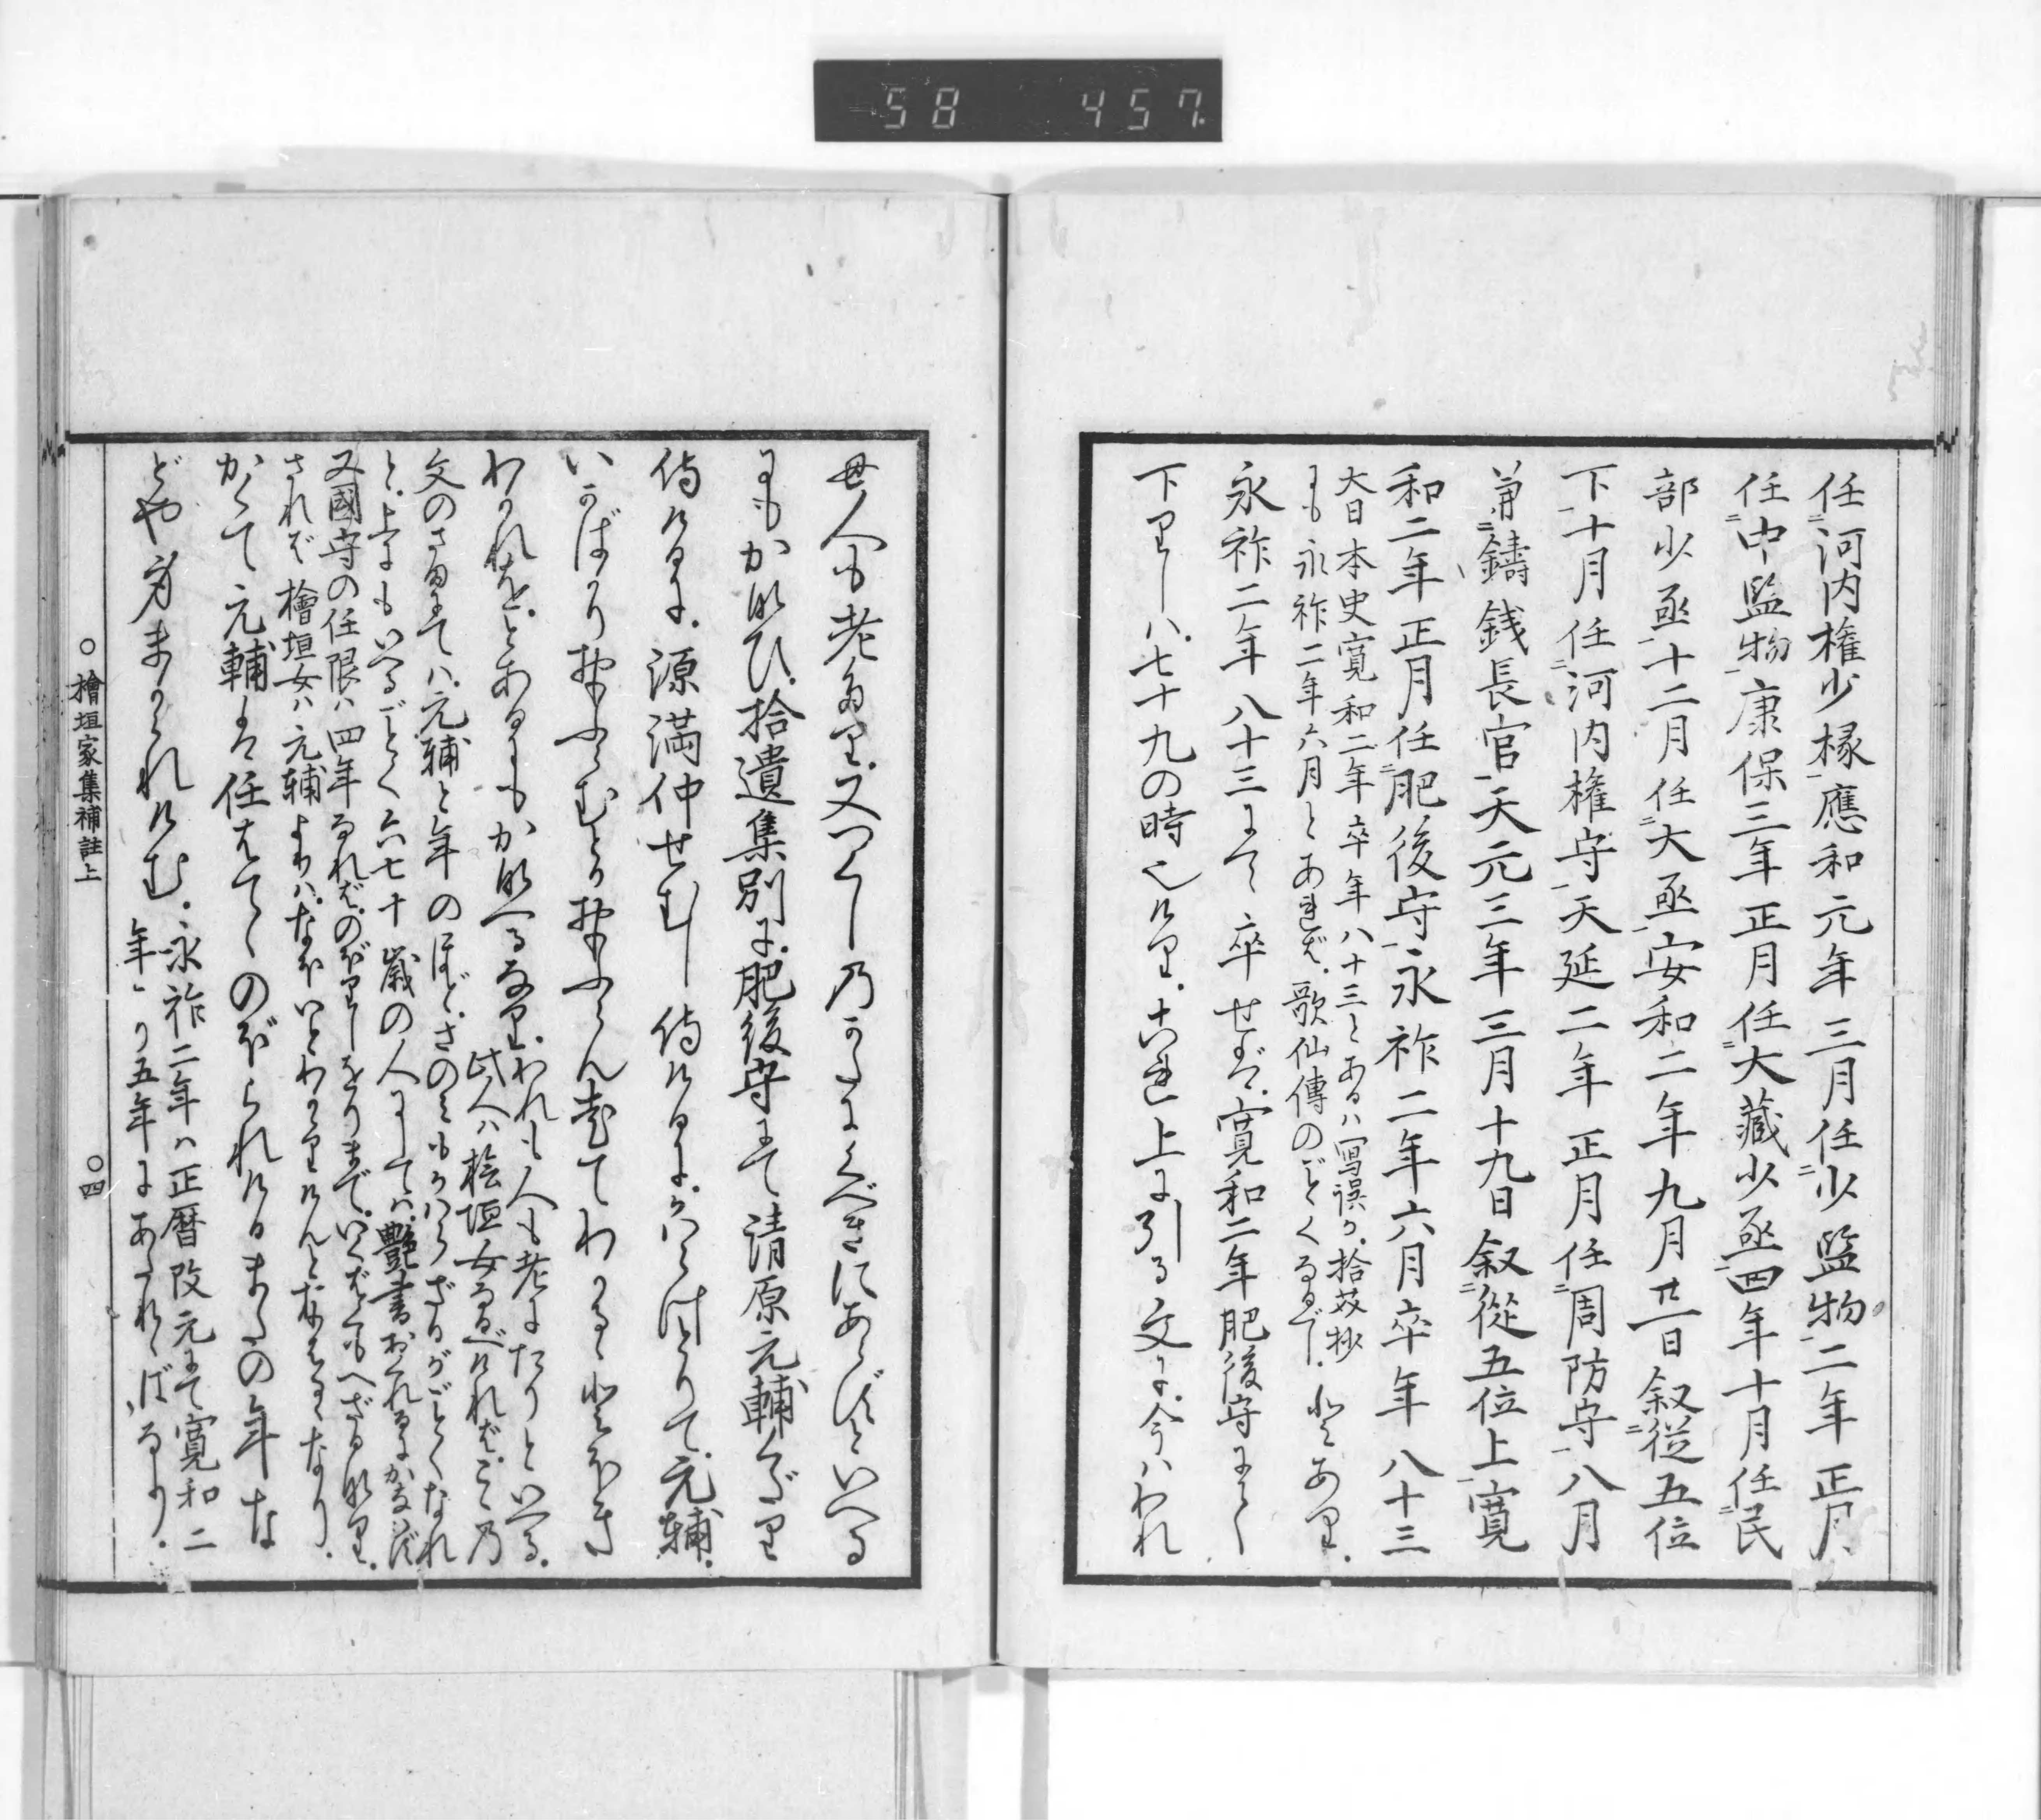 58 457
任河内権少掾應和元年三月任少監物二年正月
任中監物康保三年正月任大藏少丞四年十月任民
部少丞十二月任大丞安和二年九月廿一日叙従五位
下十月任河内権守天延二年正月任周防守八月
兼鑄銭長官天元三年三月十九日叙從五位上寛
和二年正月任肥後守永祚二年六月卒年八十三
大日本史寛和二年卒年八十三とあるハ写誤か拾芥抄
にも永祚二年六月とあれど歌仙傳のごとくなるべし とあり
永祚二年八十三にて卒せれば寛和二年肥後守にて
下りしハ七十九の時也けり これ上に引る文に今ハわれ
も人も老たり又つくしのかたにくべきにあらずといへる
にもかなひ拾遺集別に肥後守にて清原元輔くだり
侍けるに源満仲せむし侍けるにかはらけとりて元輔
いかばかりおもふらむとかおもふらん老てわかるゝとほき
わかれをとあるにもかなへるなりわれも人も老にたりといへる
此人ハ桧垣女なるべけれどこゝ乃
文のさまにてハ元輔と年のほどさのみもかはらざるがごとくなれ
と上にもいへるごとく六七十歳の人にしてハ艶書おくれるにかなはず
又國守の任限ハ四年なれどのぼりしをりまでいくばくもへざるなり
されど檜垣女ハ元輔よりハなほいとわかゝりけんとおもはるゝなり
かくて元輔は任はてゝのぼられけるまたの年な
どや身まかられけむ永祚二年ハ正暦改元にて寛和二
年より五年にあたれればなり
○檜垣家集補註上
○四